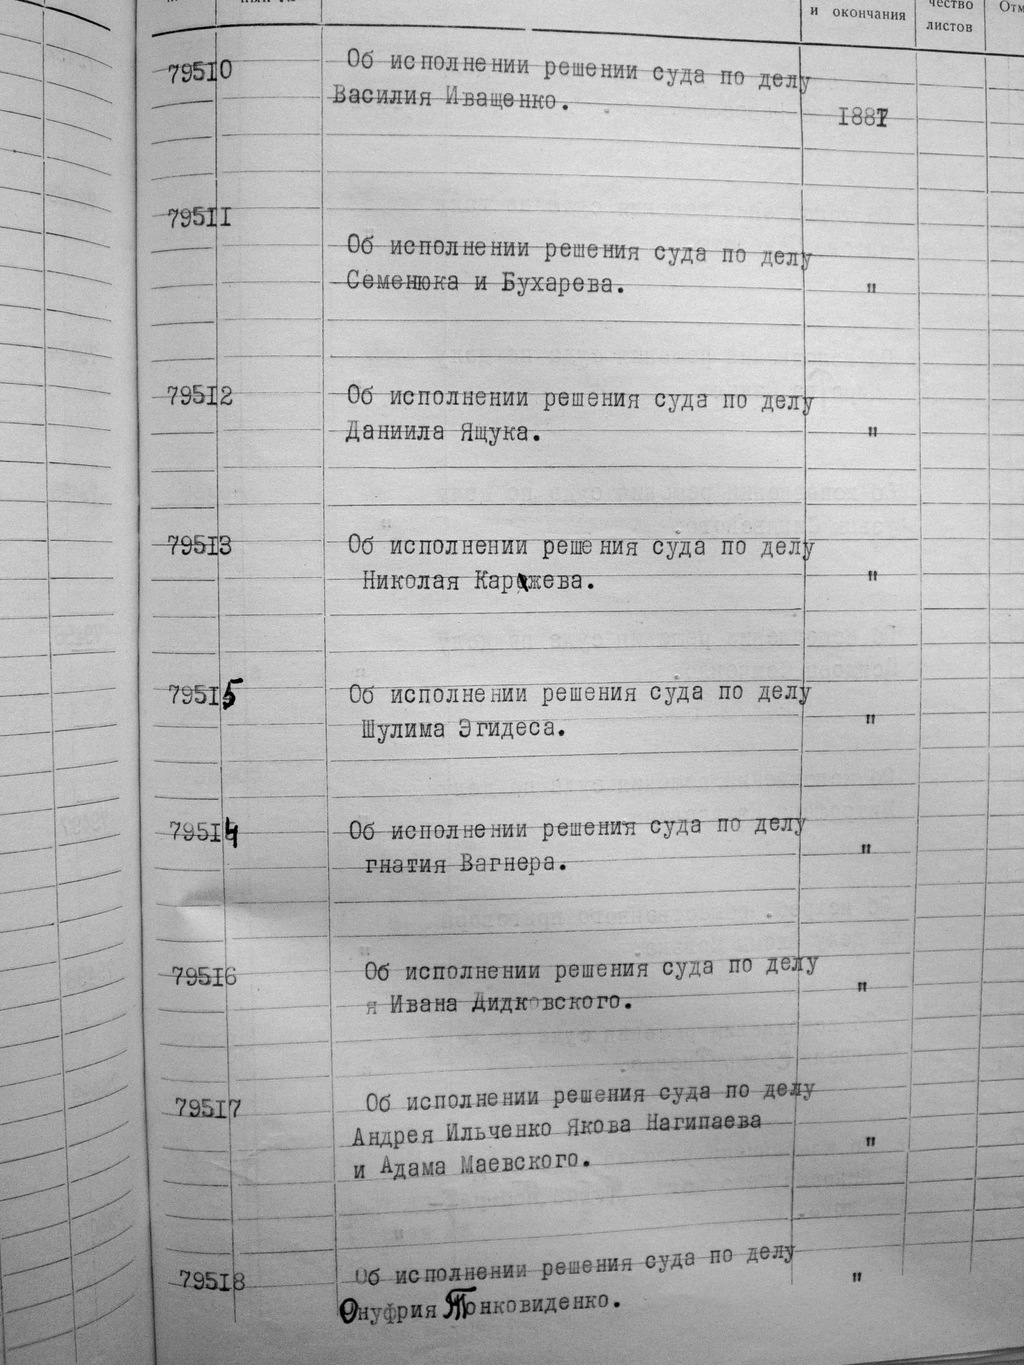 и окончания
чество
листов
Отм
79510 Об исполнении решении суда по делу
Василия Иващенко.
1887
79511
Об исполнении решения суда по делу
Семенюка и Бухарева. "
79512 Об исполнении решения суда по делу
Даниила Ящука. "
79513 Об исполнении решения суда по делу
Николая "
79515 Об исполнении решения суда по делу
Шулима Эгидеса. "
79514 Об исполнении решения суда по делу
гнатия Вагнера. "
79516 Об исполнении решения суда по делу
я Ивана Дидковского. "
79517 Об исполнении решения суда по делу
Андрея Ильченко Якова Нагипаева "
и Адама Маевского.
79518 Об исполнении решения суда по делу "
Онуфрия Тонковиденко.